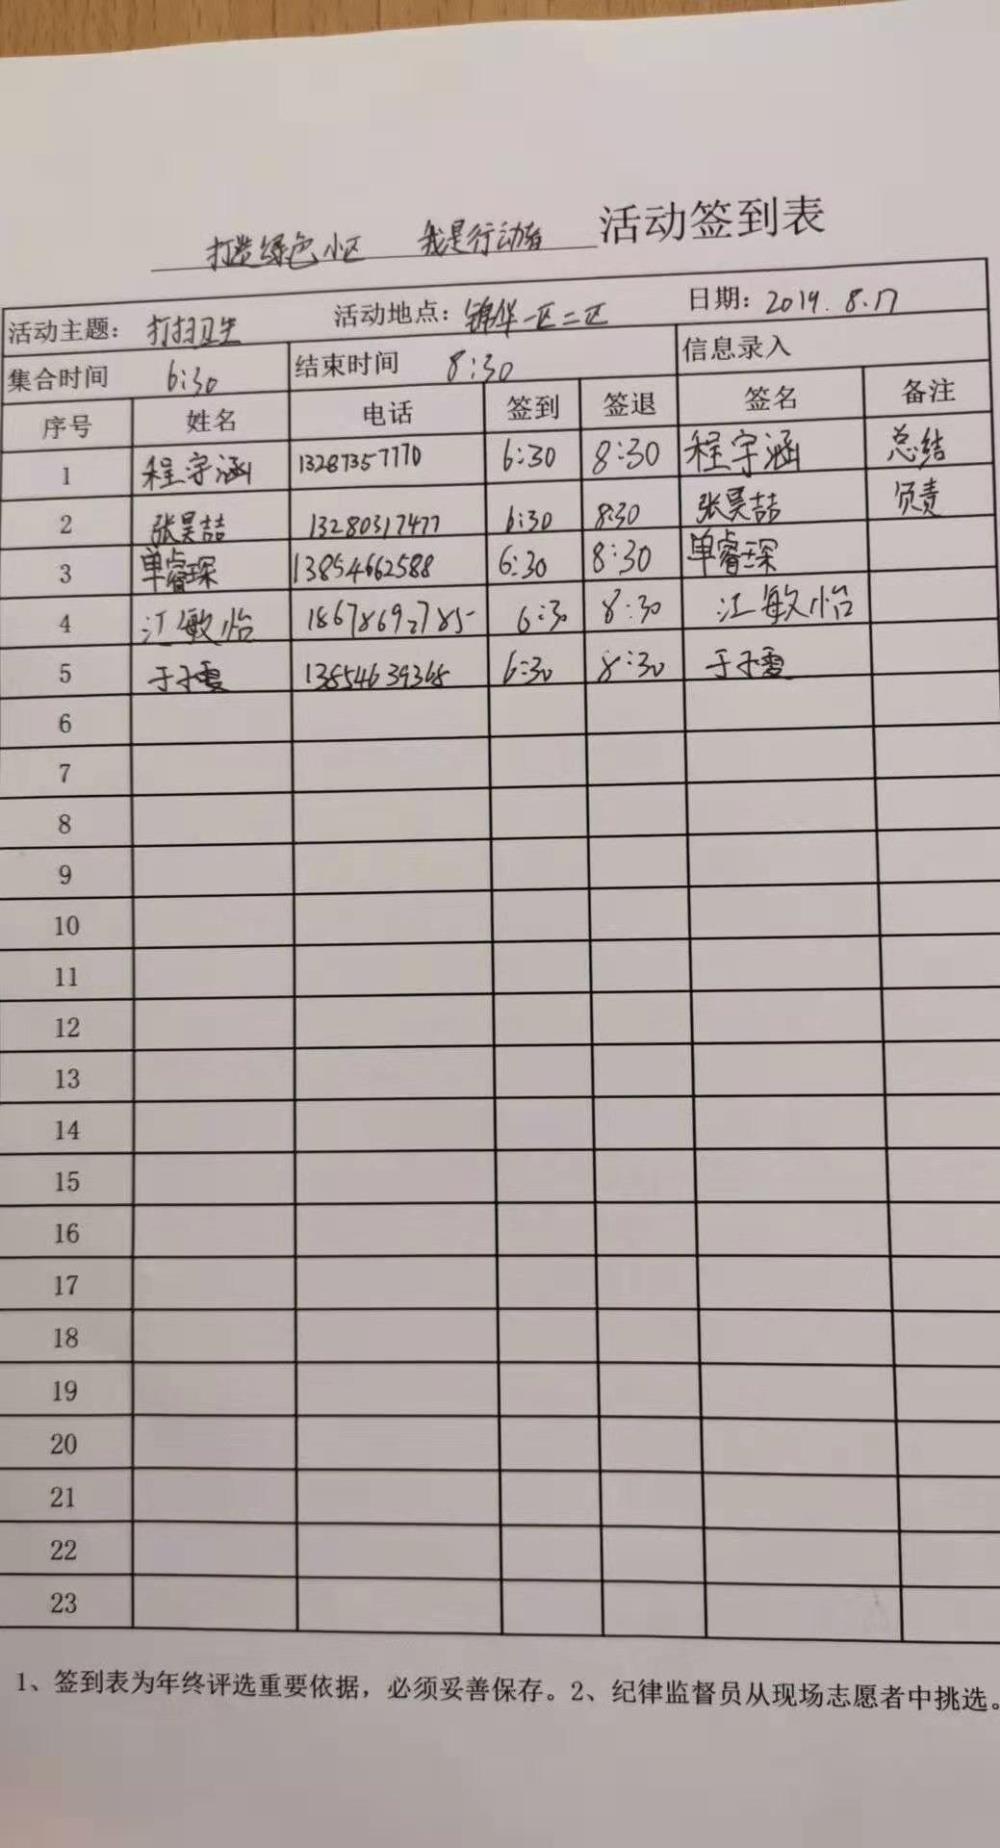 打造绿色小区 我是行动者 活动签到表
活动主题: 打扫卫生 活动地点: 锦华一区二区 日期: 2019.8.17
集合时间 6:30 结束时间 8:30 信息录入
序号 姓名 电话 签到 签退 签名 备注
1 程宇涵 13287357770 6:30 8:30 程宇涵 总结
2 张昊喆 13280317477 6:30 8:30 张昊喆 负责
3 单睿琛 13854662588 6:30 8:30 单睿琛
4 江敏怡 18678692785 6:30 8:30 江敏怡
5 于子雯 13854639368 6:30 8:30 于子雯
6
7
8
9
10
11
12
13
14
15
16
17
18
19
20
21
22
23
1、签到表为年终评选重要依据，必须妥善保存。2、纪律监督员从现场志愿者中挑选。